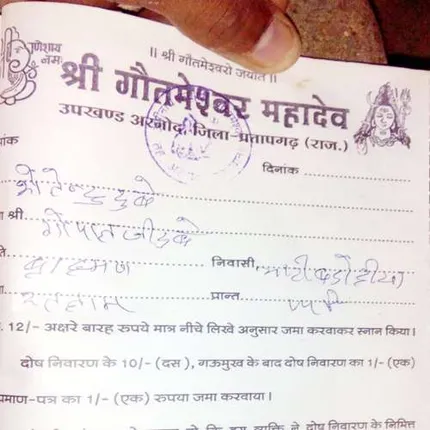 गणेशाय नमः
।। श्री गौतमेश्वरो जयति ।।
श्री गौतमेश्वर महादेव
उपखण्ड अरनोद, जिला-प्रतापगढ़ (राज.)
ांक दिनांक
दुबे
श्री गोपालजी दुबे
ब्राह्मण निवासी,
रतलाम प्रान्त
. 12/- अक्षरे बारह रुपये मात्र नीचे लिखे अनुसार जमा करवाकर स्नान किया।
दोष निवारण के 10/- (दस), गऊमुख के बाद दोष निवारण का 1/- (एक)
प्रमाण-पत्र का 1/- (एक) रुपया जमा करवाया।
कि इस व्यक्ति ने दोष निवारण के निमित्त